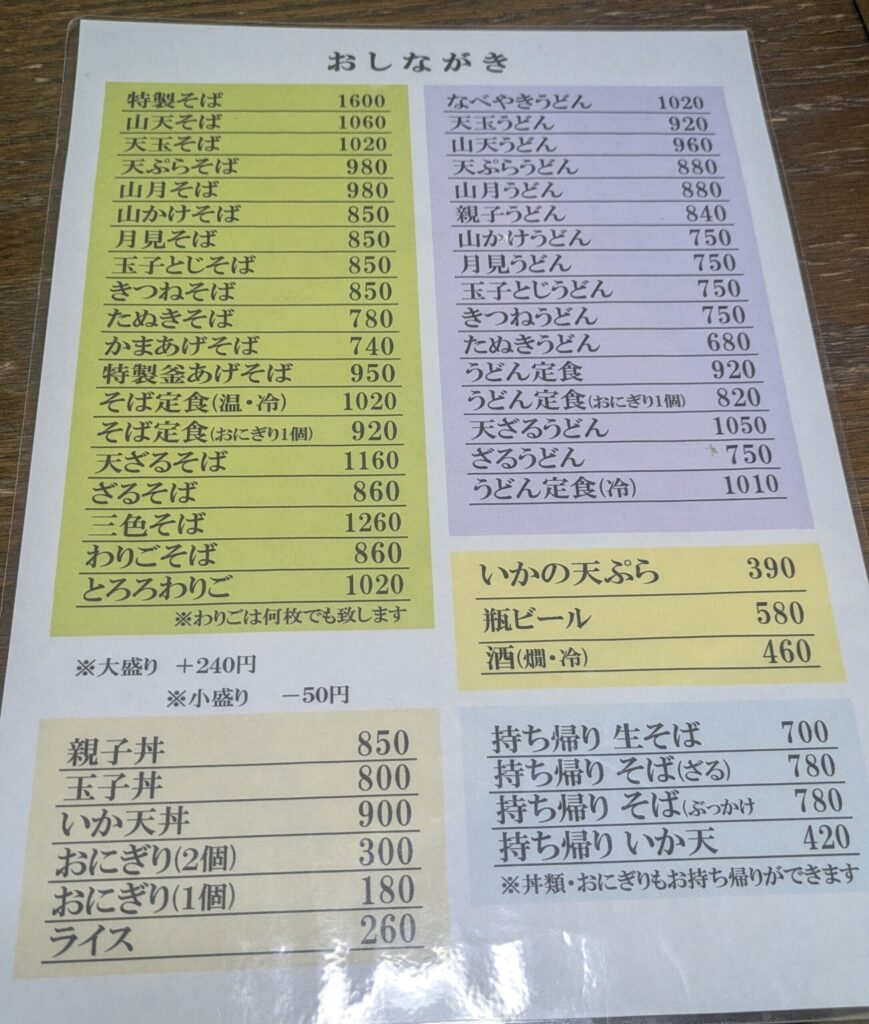 おしながき
特製そば 1600
山天そば 1060
天玉そば 1020
天ぷらそば 980
山月そば 980
山かけそば 850
月見そば 850
玉子とじそば 850
きつねそば 850
たぬきそば 780
かまあげそば 740
特製釜あげそば 950
そば定食(温・冷) 1020
そば定食(おにぎり1個) 920
天ざるそば 1160
ざるそば 860
三色そば 1260
わりごそば 860
とろろわりご 1020
※わりごは何枚でも致します
※大盛り +240円
※小盛り -50円
親子丼 850
玉子丼 800
いか天丼 900
おにぎり(2個) 300
おにぎり(1個) 180
ライス 260
なべやきうどん 1020
天玉うどん 920
山天うどん 960
天ぷらうどん 880
山月うどん 880
親子うどん 840
山かけうどん 750
月見うどん 750
玉子とじうどん 750
きつねうどん 750
たぬきうどん 680
うどん定食 920
うどん定食(おにぎり1個) 820
天ざるうどん 1050
ざるうどん 750
うどん定食(冷) 1010
いかの天ぷら 390
瓶ビール 580
酒(燗・冷) 460
持ち帰り 生そば 700
持ち帰り そば(ざる) 780
持ち帰り そば(ぶっかけ 780
持ち帰り いか天 420
※丼類・おにぎりもお持ち帰りができます